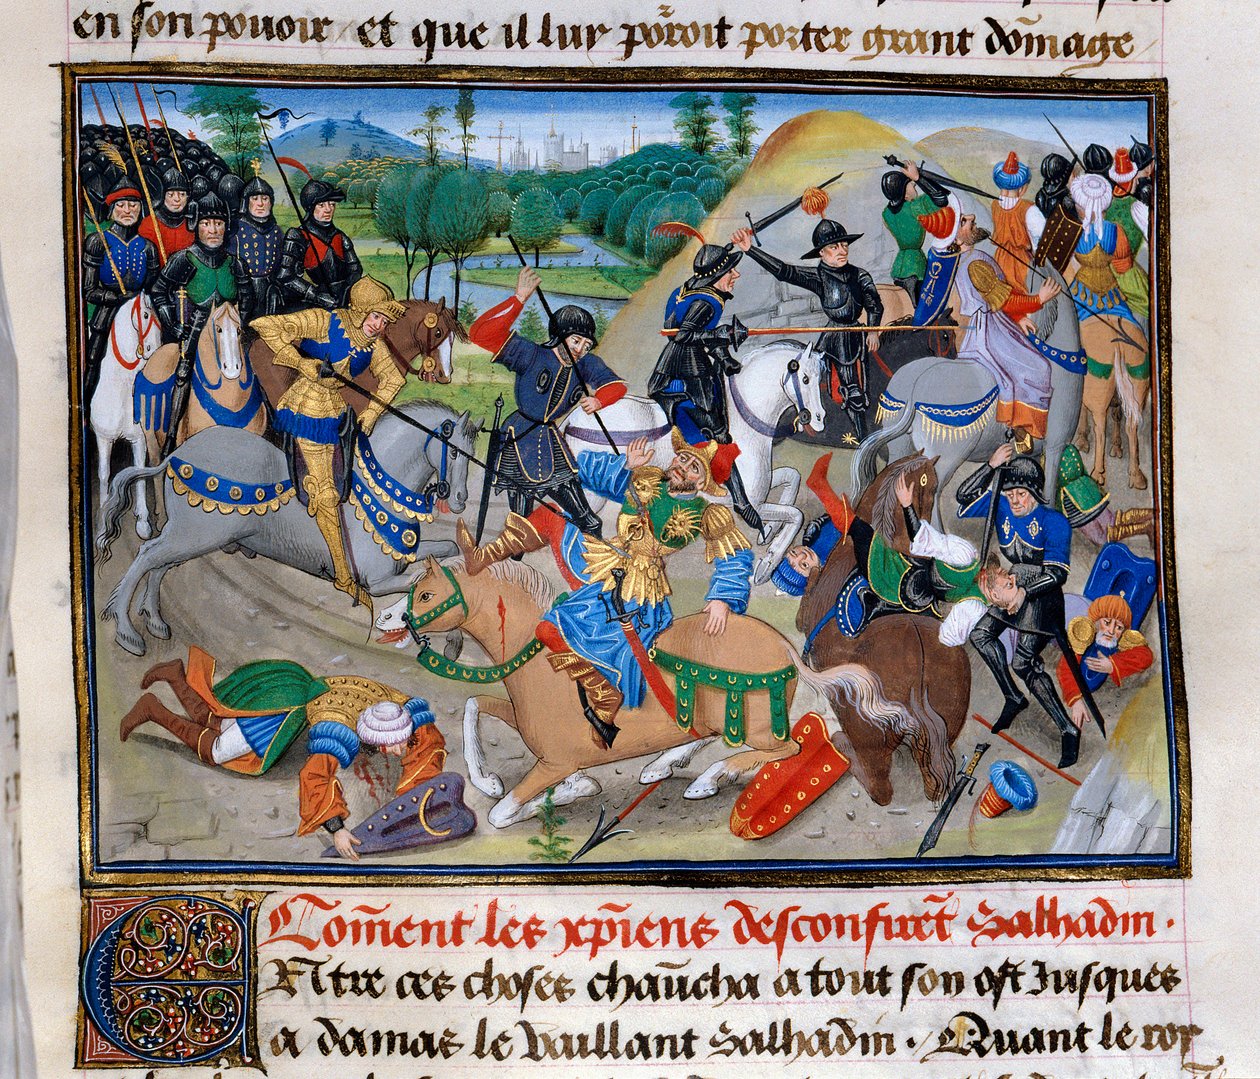 en son pouoir et que il luy pōroit porter grant dōmage
Com̄ent les xp̄iens desconfirēt Salhadin.
Entre ces choses chaūcha a tout son ost Jusques
a damas le vaillant Salhadin. Quant le roy